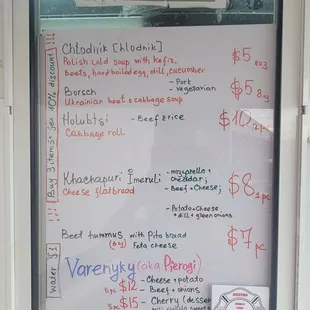 Chlodnik [hlodnik] $5 8oz
Polish cold soup with kefir,
beets, hardboiled egg, dill, cucumber
Borsch - Pork $5 8oz
- vegetarian
Ukrainian beet & cabbage soup
Holubtsi - Beef & rice
Cabbage roll
Khachapuri Imeruli - mozzarella +
cheddar;
Cheese flatbread - Beef + Cheese; $8 1pc
- Potato + Cheese
+ dill + green onions
Beet hummus with Pita bread $7 pc
Feta cheese
Varenyky (aka Pierogi)
5pc $12 - Cheese + potato
- Beef + onions
5pc $15 - Cherry (dessert
!!! Buy 3 items + get 10% discount !!!
Water $1